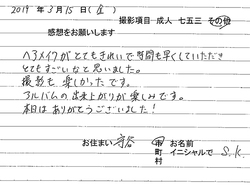 2019年 3月15日(金)
撮影項目 成人 七五三 その他
感想をお願いします
ヘアメイクがとてもきれいで時間も早くしていただき
とてもすごいなと思いました。
撮影も楽しかったです。
アルバムの出来上がりが楽しみです。
本日はありがとうございました!
お住まい 守谷 市町村 お名前 イニシャルで S.K.